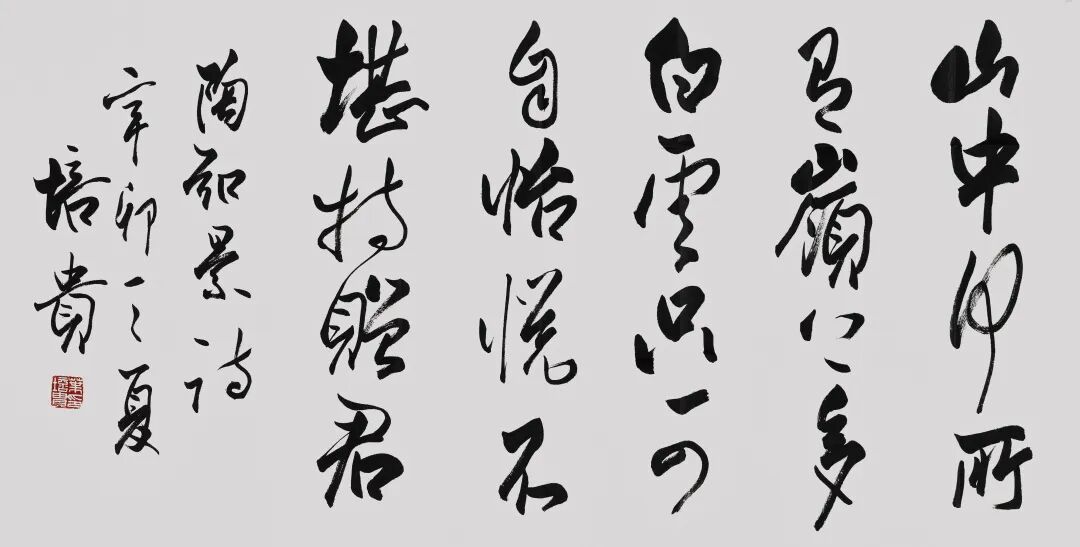 山中何所
有嶺上多
白雲只可
自怡悦不
堪持贈君
陶弘景詩
辛卯之夏
培貴